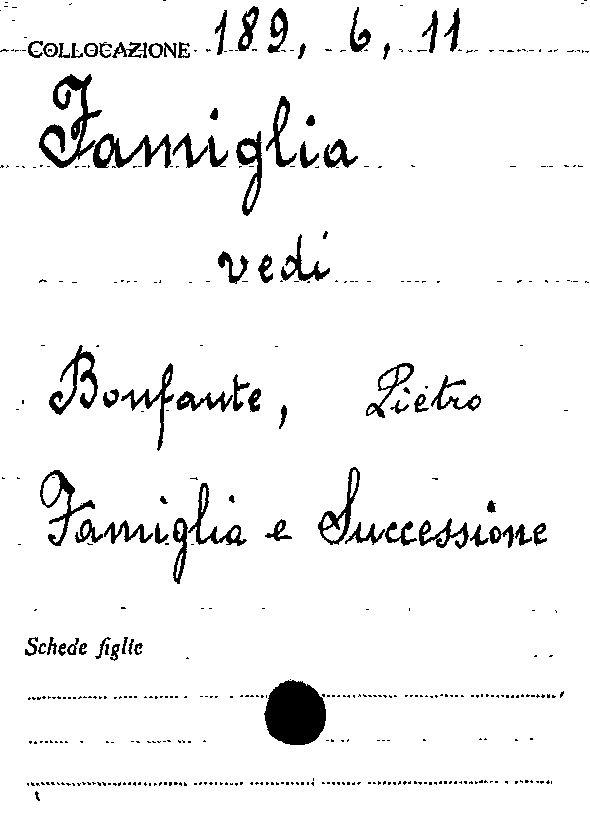 COLLOCAZIONE 189, 6, 11
Famiglia
vedi
Bonfante, Pietro
Famiglia e Successione
Schede figlie